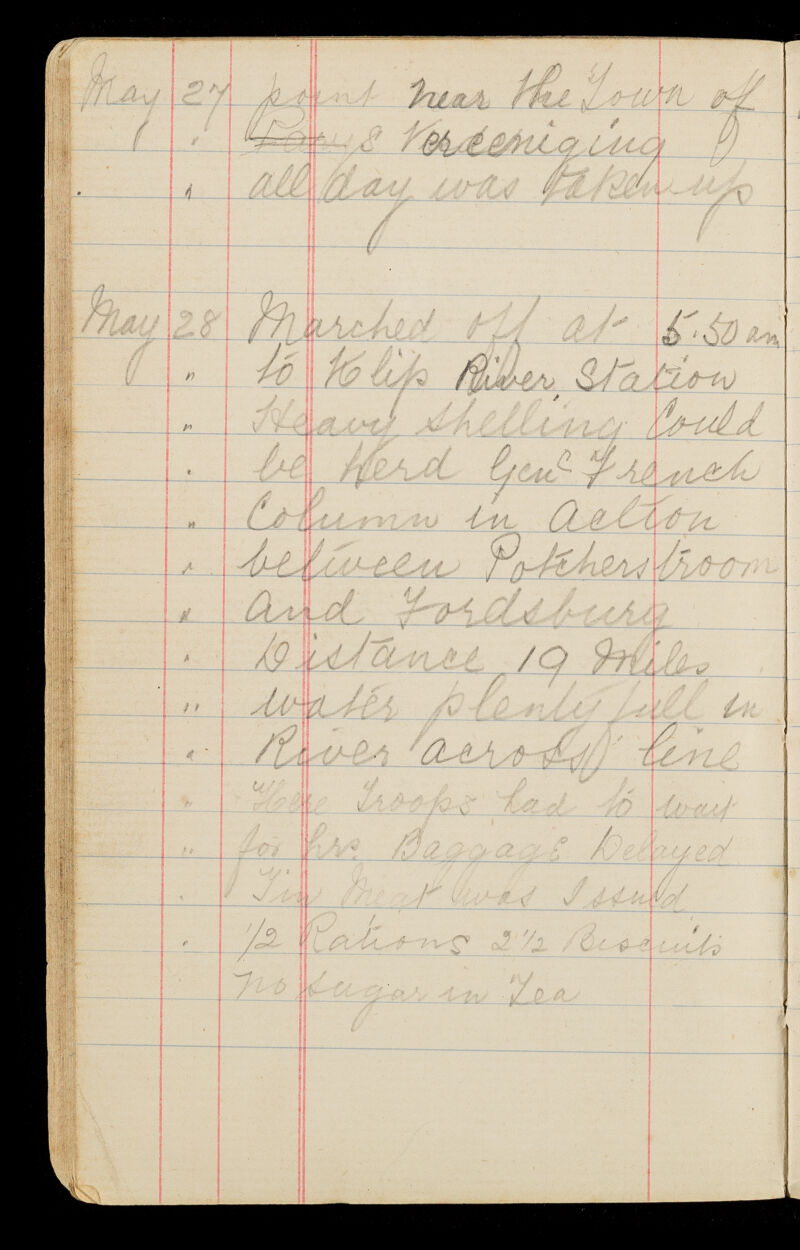 May 27 point near the Town of
" Parys Vereeniging
" all day was taken up
May 28 Marched off at 5.50 am
" to Klip River Station
" Heavy shelling Could
" be Herd Genl French
" Column in action
" between Potcherstroom
" and Fordsburg
" Distance 19 Miles
" water plentyfull in
" River across line
" Here Troops had to wait
" for hrs. Baggage Delayed
" Tin Meat was Issud
" 1/2 Rations 2 1/2 Biscuits
no sugar in Tea